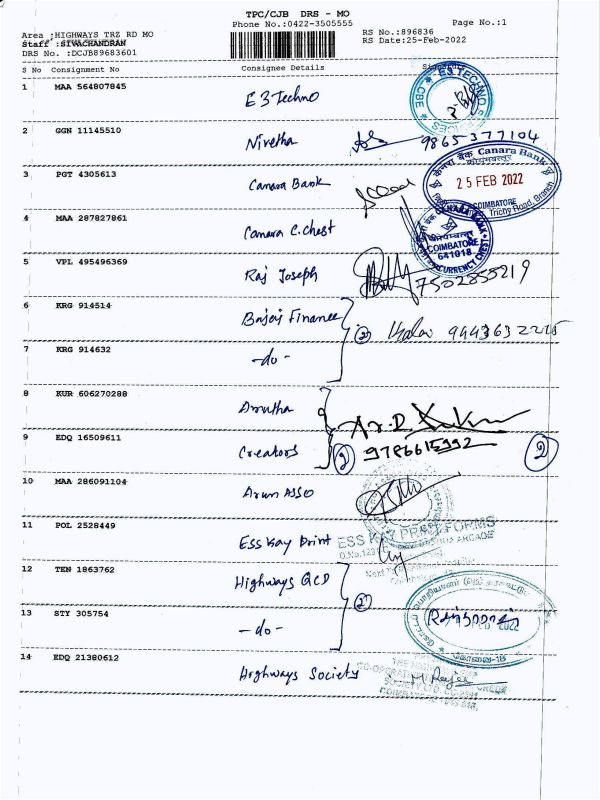 TPC/CJB DRS - MO
Phone No.:0422-3505555
Page No.:1
Area :HIGHWAYS TRZ RD MO
Staff :SIVACHANDRAN
DRS No. :DCJB89683601
RS No.:896836
RS Date:25-Feb-2022
S No Consignment No Consignee Details
1 MAA 564807845 E3 Techno
E3 TECHNO SERVICES
CBE
2 GGN 11145510 Nivetha 9865377104
3 PGT 4305613 Canara Bank
केनरा बैंक Canara Bank
25 FEB 2022
COIMBATORE
Trichy Road, Branch
4 MAA 287827861 Canara C. Chest
CANARA BANK
COIMBATORE
641018
CURRENCY CHEST
5 VPL 495496369 Raj Joseph 7502855219
6 KRG 914514 Bajaj Finance
(2) 9443632225
7 KRG 914632 -do-
8 KUR 606270288 Amutha
9 EDQ 16509611 Creators
(2) 9786615992 (2)
10 MAA 286091104 Arun Asso
11 POL 2528449 Ess Kay Print
ESS KAY PRINT FORMS
ARCADE
12 TEN 1863762 Highways QCD
(2)
13 STY 305754 -do-
2022
கோவை-18
14 EDQ 21380612 Highways Society
THE HIGHWAYS
SOCIETY LTD